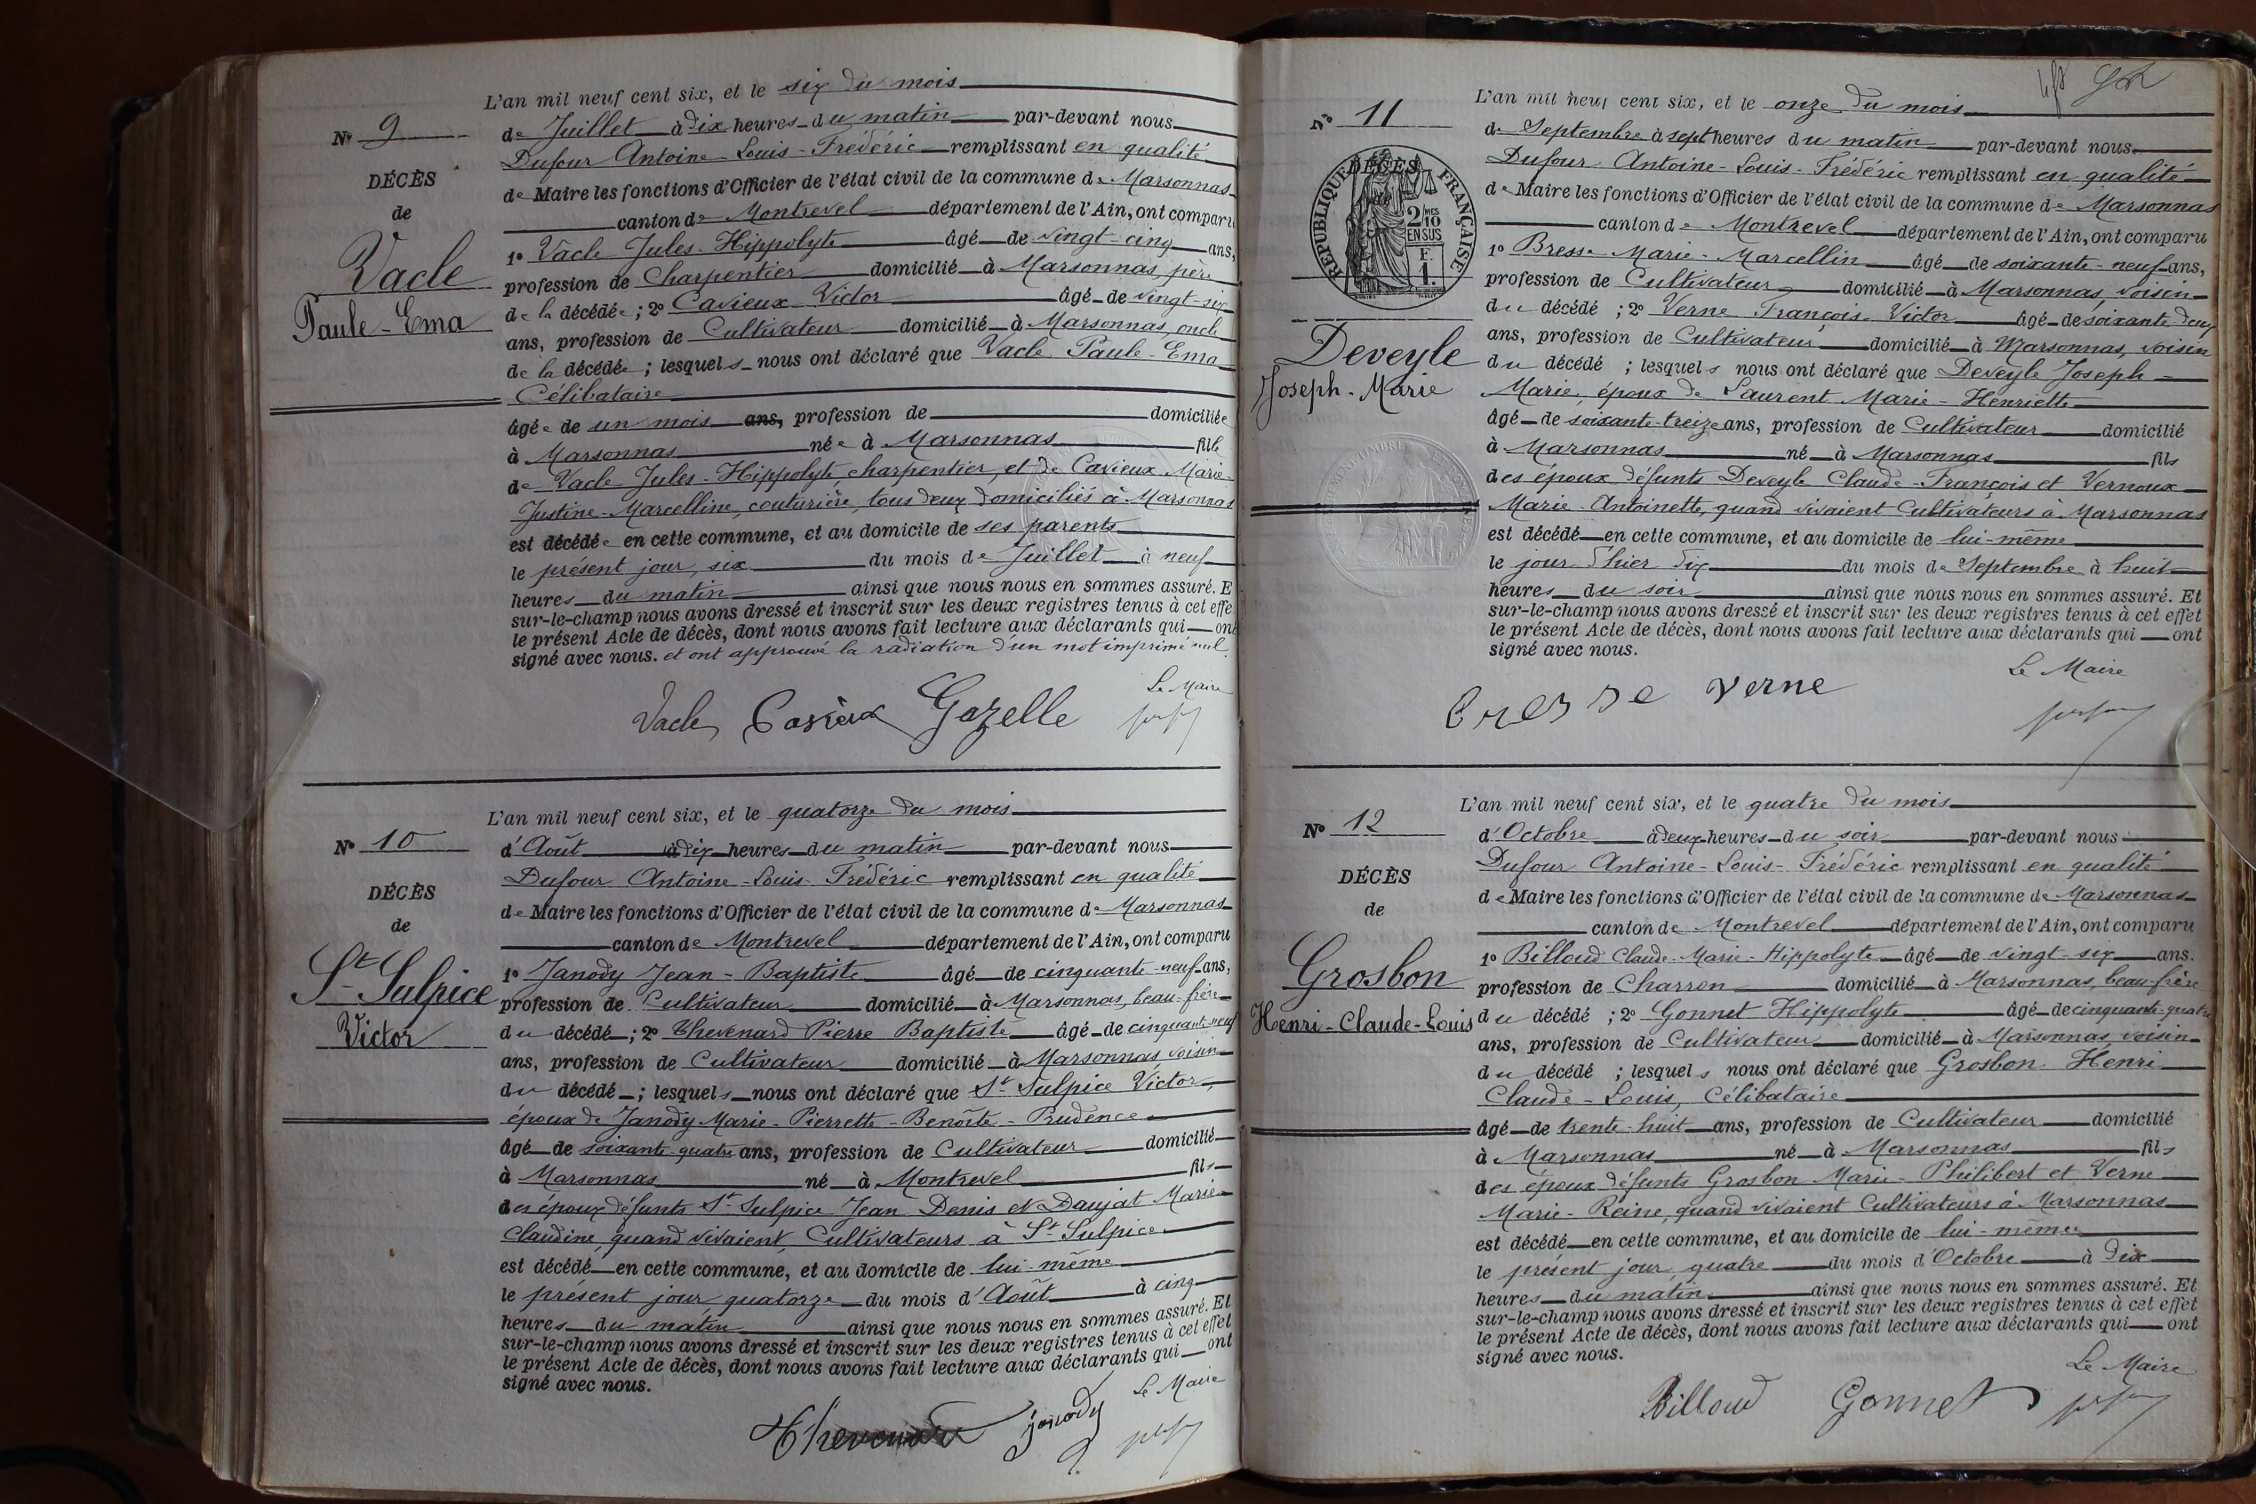 L'an mil neuf cent six, et le six du mois
Nº 9
de Juillet à dix heures du matin par-devant nous
Dufour Antoine-Louis-Frédéric remplissant en qualité
DÉCÈS
de Maire les fonctions d'Officier de l'état civil de la commune de Marsonnas
de
canton de Montrevel département de l'Ain, ont comparu
Vacle
Paule-Ema
1º Vacle Jules-Hippolyte âgé de vingt-cinq ans,
profession de Charpentier domicilié à Marsonnas, père
de la décédée ; 2º Cavieux Victor âgé de vingt-six
ans, profession de Cultivateur domicilié à Marsonnas, oncle
de la décédée ; lesquels nous ont déclaré que Vacle Paule-Ema
Célibataire
âgée de un mois ans, profession de domiciliée
à Marsonnas née à Marsonnas fille
de Vacle Jules-Hippolyte, charpentier, et de Cavieux Marie-
Justine-Marcelline, couturière, tous deux domiciliés à Marsonnas
est décédée en cette commune, et au domicile de ses parents
le présent jour, six du mois de Juillet à neuf
heures du matin ainsi que nous nous en sommes assuré. E
sur-le-champ nous avons dressé et inscrit sur les deux registres tenus à cet effe
le présent Acte de décès, dont nous avons fait lecture aux déclarants qui ont
signé avec nous. et ont approuvé la radiation d'un mot imprimé nul.
Le Maire
Vacle Cavieux Gazelle
L'an mil neuf cent six, et le quatorze du mois
Nº 10
d'Août à dix heures du matin par-devant nous
Dufour Antoine-Louis-Frédéric remplissant en qualité
DÉCÈS
de Maire les fonctions d'Officier de l'état civil de la commune de Marsonnas
de
canton de Montrevel département de l'Ain, ont comparu
St Sulpice
Victor
1º Janody Jean-Baptiste âgé de cinquante-neuf ans,
profession de Cultivateur domicilié à Marsonnas, beau-frère
du décédé ; 2º Thevenard Pierre Baptiste âgé de cinquante-neuf
ans, profession de Cultivateur domicilié à Marsonnas, voisin
du décédé ; lesquels nous ont déclaré que St Sulpice Victor,
époux de Janody Marie-Pierrette-Benoîte-Prudence
âgé de soixante-quatre ans, profession de Cultivateur domicilié
à Marsonnas né à Montrevel fils
des époux défunts St Sulpice Jean Denis et Daujat Marie-
Claudine, quand vivaient, Cultivateurs à St Sulpice
est décédé en cette commune, et au domicile de lui-même
le présent jour quatorze du mois d'Août à cinq
heures du matin ainsi que nous nous en sommes assuré. Et
sur-le-champ nous avons dressé et inscrit sur les deux registres tenus à cet effet
le présent Acte de décès, dont nous avons fait lecture aux déclarants qui ont
signé avec nous.
Le Maire
Thevenard janody
L'an mil neuf cent six, et le onze du mois
Nº 11
de Septembre à sept heures du matin par-devant nous
Dufour Antoine-Louis-Frédéric remplissant en qualité
de Maire les fonctions d'Officier de l'état civil de la commune de Marsonnas
canton de Montrevel département de l'Ain, ont comparu
DÉCÈS
RÉPUBLIQUE FRANÇAISE
2 MES 10
EN SUS
F.
1.
Deveyle
Joseph-Marie
1º Bresse Marie-Marcellin âgé de soixante-neuf ans,
profession de Cultivateur domicilié à Marsonnas, voisin
du décédé ; 2º Verne François-Victor âgé de soixante-deux
ans, profession de Cultivateur domicilié à Marsonnas, voisin
du décédé ; lesquels nous ont déclaré que Deveyle Joseph-
Marie, époux de Laurent Marie-Henriette
âgé de soixante-treize ans, profession de Cultivateur domicilié
à Marsonnas né à Marsonnas fils
des époux défunts Deveyle Claude-François et Vernoux
Marie-Antoinette, quand vivaient Cultivateurs à Marsonnas
est décédé en cette commune, et au domicile de lui-même
le jour d'hier dix du mois de Septembre à huit
heures du soir ainsi que nous nous en sommes assuré. Et
sur-le-champ nous avons dressé et inscrit sur les deux registres tenus à cet effet
le présent Acte de décès, dont nous avons fait lecture aux déclarants qui ont
signé avec nous.
Le Maire
Bresse Verne
L'an mil neuf cent six, et le quatre du mois
Nº 12
d'Octobre à deux heures du soir par-devant nous
Dufour Antoine-Louis-Frédéric remplissant en qualité
DÉCÈS
de Maire les fonctions d'Officier de l'état civil de la commune de Marsonnas
de
canton de Montrevel département de l'Ain, ont comparu
Grosbon
Henri-Claude-Louis
1º Billoud Claude-Marie-Hippolyte âgé de vingt-six ans.
profession de Charron domicilié à Marsonnas, beau-frère
du décédé ; 2º Gonnet Hippolyte âgé de cinquante-quatre
ans, profession de Cultivateur domicilié à Marsonnas, voisin
du décédé ; lesquels nous ont déclaré que Grosbon Henri
Claude-Louis, Célibataire
âgé de trente-huit ans, profession de Cultivateur domicilié
à Marsonnas né à Marsonnas fils
des époux défunts Grosbon Marie-Philibert et Verne
Marie-Reine, quand vivaient Cultivateurs à Marsonnas
est décédé en cette commune, et au domicile de lui-même
le présent jour quatre du mois d'Octobre à dix
heures du matin ainsi que nous nous en sommes assuré. Et
sur-le-champ nous avons dressé et inscrit sur les deux registres tenus à cet effet
le présent Acte de décès, dont nous avons fait lecture aux déclarants qui ont
signé avec nous.
Le Maire
Billoud Gonnet